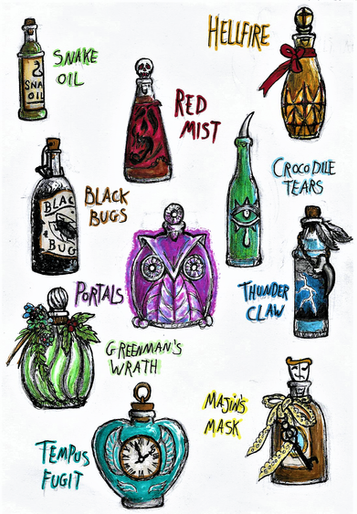 HELLFIRE
SNAKE
OIL
SNA
OIL
RED
MIST
CROCODILE
TEARS
BLACK
BUGS
BLAC
BUG
PORTALS
THUNDER
CLAW
GREENMAN'S
WRATH
MAJIN'S
MASK
TEMPUS
FUGIT